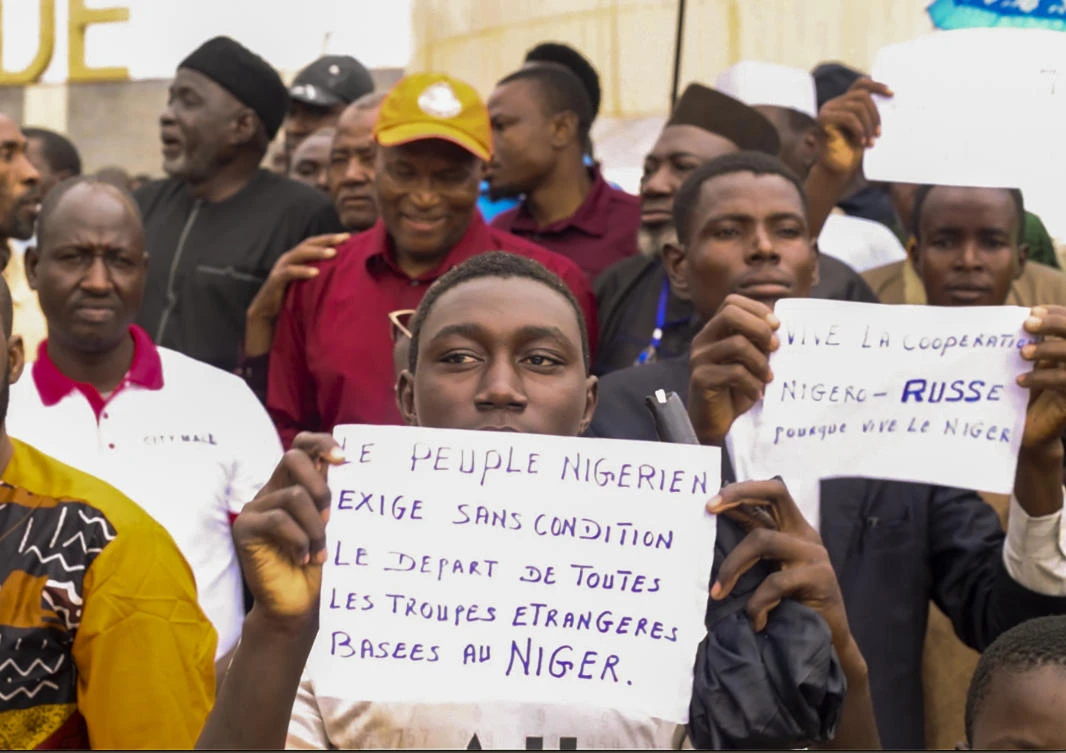 DE
CITY MALL
LE PEUPLE NIGERIEN
EXIGE SANS CONDITION
LE DEPART DE TOUTES
LES TROUPES ETRANGERES
BASEES AU NIGER.
VIVE LA COOPERATION
NIGERO - RUSSE
pourque vive Le NIGER